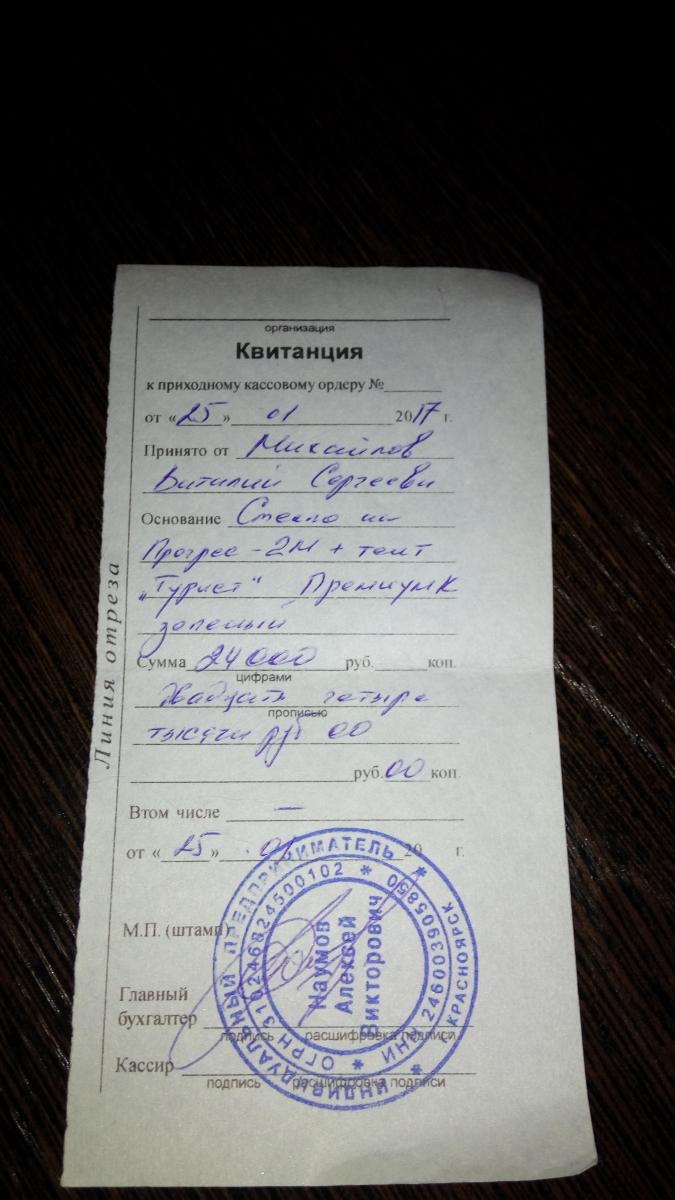 организация
Квитанция
к приходному кассовому ордеру №
от «25» 01 2017 г.
Принято от Михайлов
Виталий Сергееви
Основание Стекло на
Прогрес-2М + тент
„Турист“ Премиум К
зеленый
Сумма 24 000 руб. коп.
цифрами
Двадцать четыре
прописью
тысячи руб 00
руб. 00 коп.
Втом числе —
от «25» 01 20 г.
М.П. (штамп)
Главный
бухгалтер
подпись расшифровка подписи
Кассир
подпись расшифровка подписи
Линия отреза
ИНДИВИДУАЛЬНЫЙ ПРЕДПРИНИМАТЕЛЬ
г. КРАСНОЯРСК
ОГРН 310246824500102
ИНН 246003905850
Наумов
Алексей
Викторович